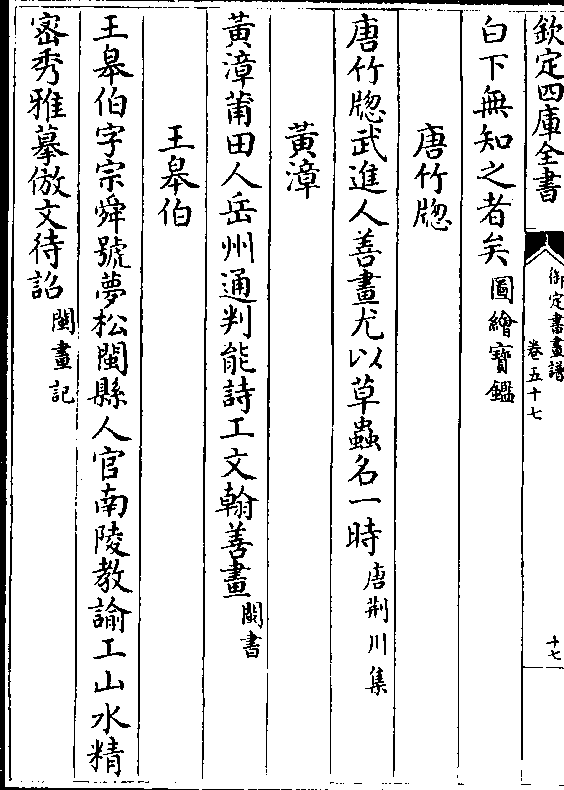 欽定四庫全書
御定書畫譜
卷五十七
十七
白下無知之者矣圖繪寶鑑
唐竹牎
唐竹牎武進人善畫尤以草蟲名一時唐荆川集
黃漳
黃漳莆田人岳州通判能詩工文翰善畫閩書
王皋伯
王皋伯字宗舜號夢松閩縣人官南陵教諭工山水精
密秀雅摹倣文待詔閩畫記